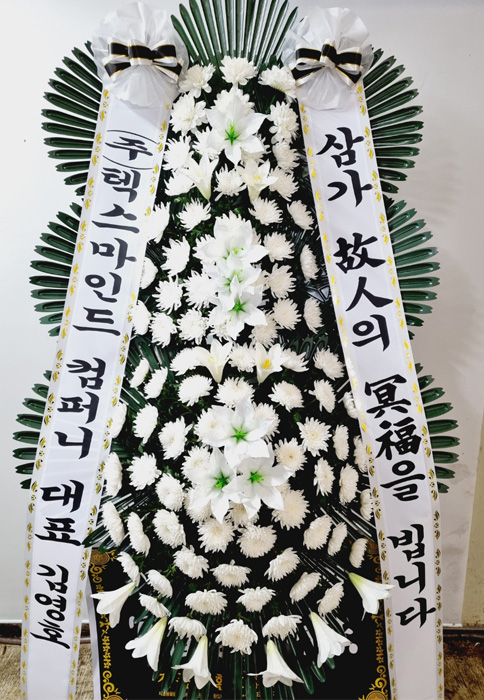 (주)텍스마인드 컴퍼니 대표 김영호
삼가 故人의 冥福을 빕니다